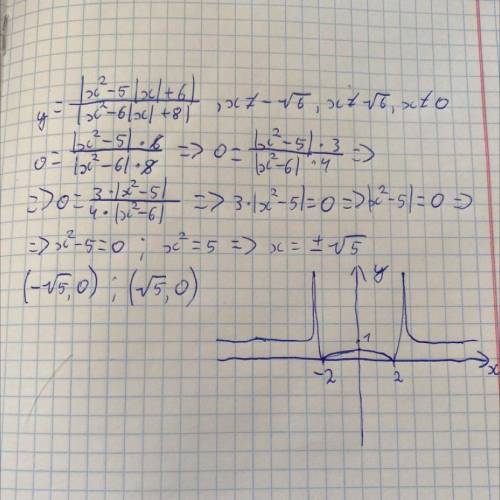 y = |x²-5|x|+6| / |x²-6|x|+8| , x≠-√6, x≠√6, x≠0
0 = |x²-5|·6 / |x²-6|·8 => 0 = |x²-5|·3 / |x²-6|·4 =>
=> 0 = 3·|x²-5| / 4·|x²-6| => 3·|x²-5|=0 => |x²-5|=0 =>
=> x²-5=0 ; x²=5 => x=±√5
(-√5,0) ; (√5,0)
y
1
-2 2 x